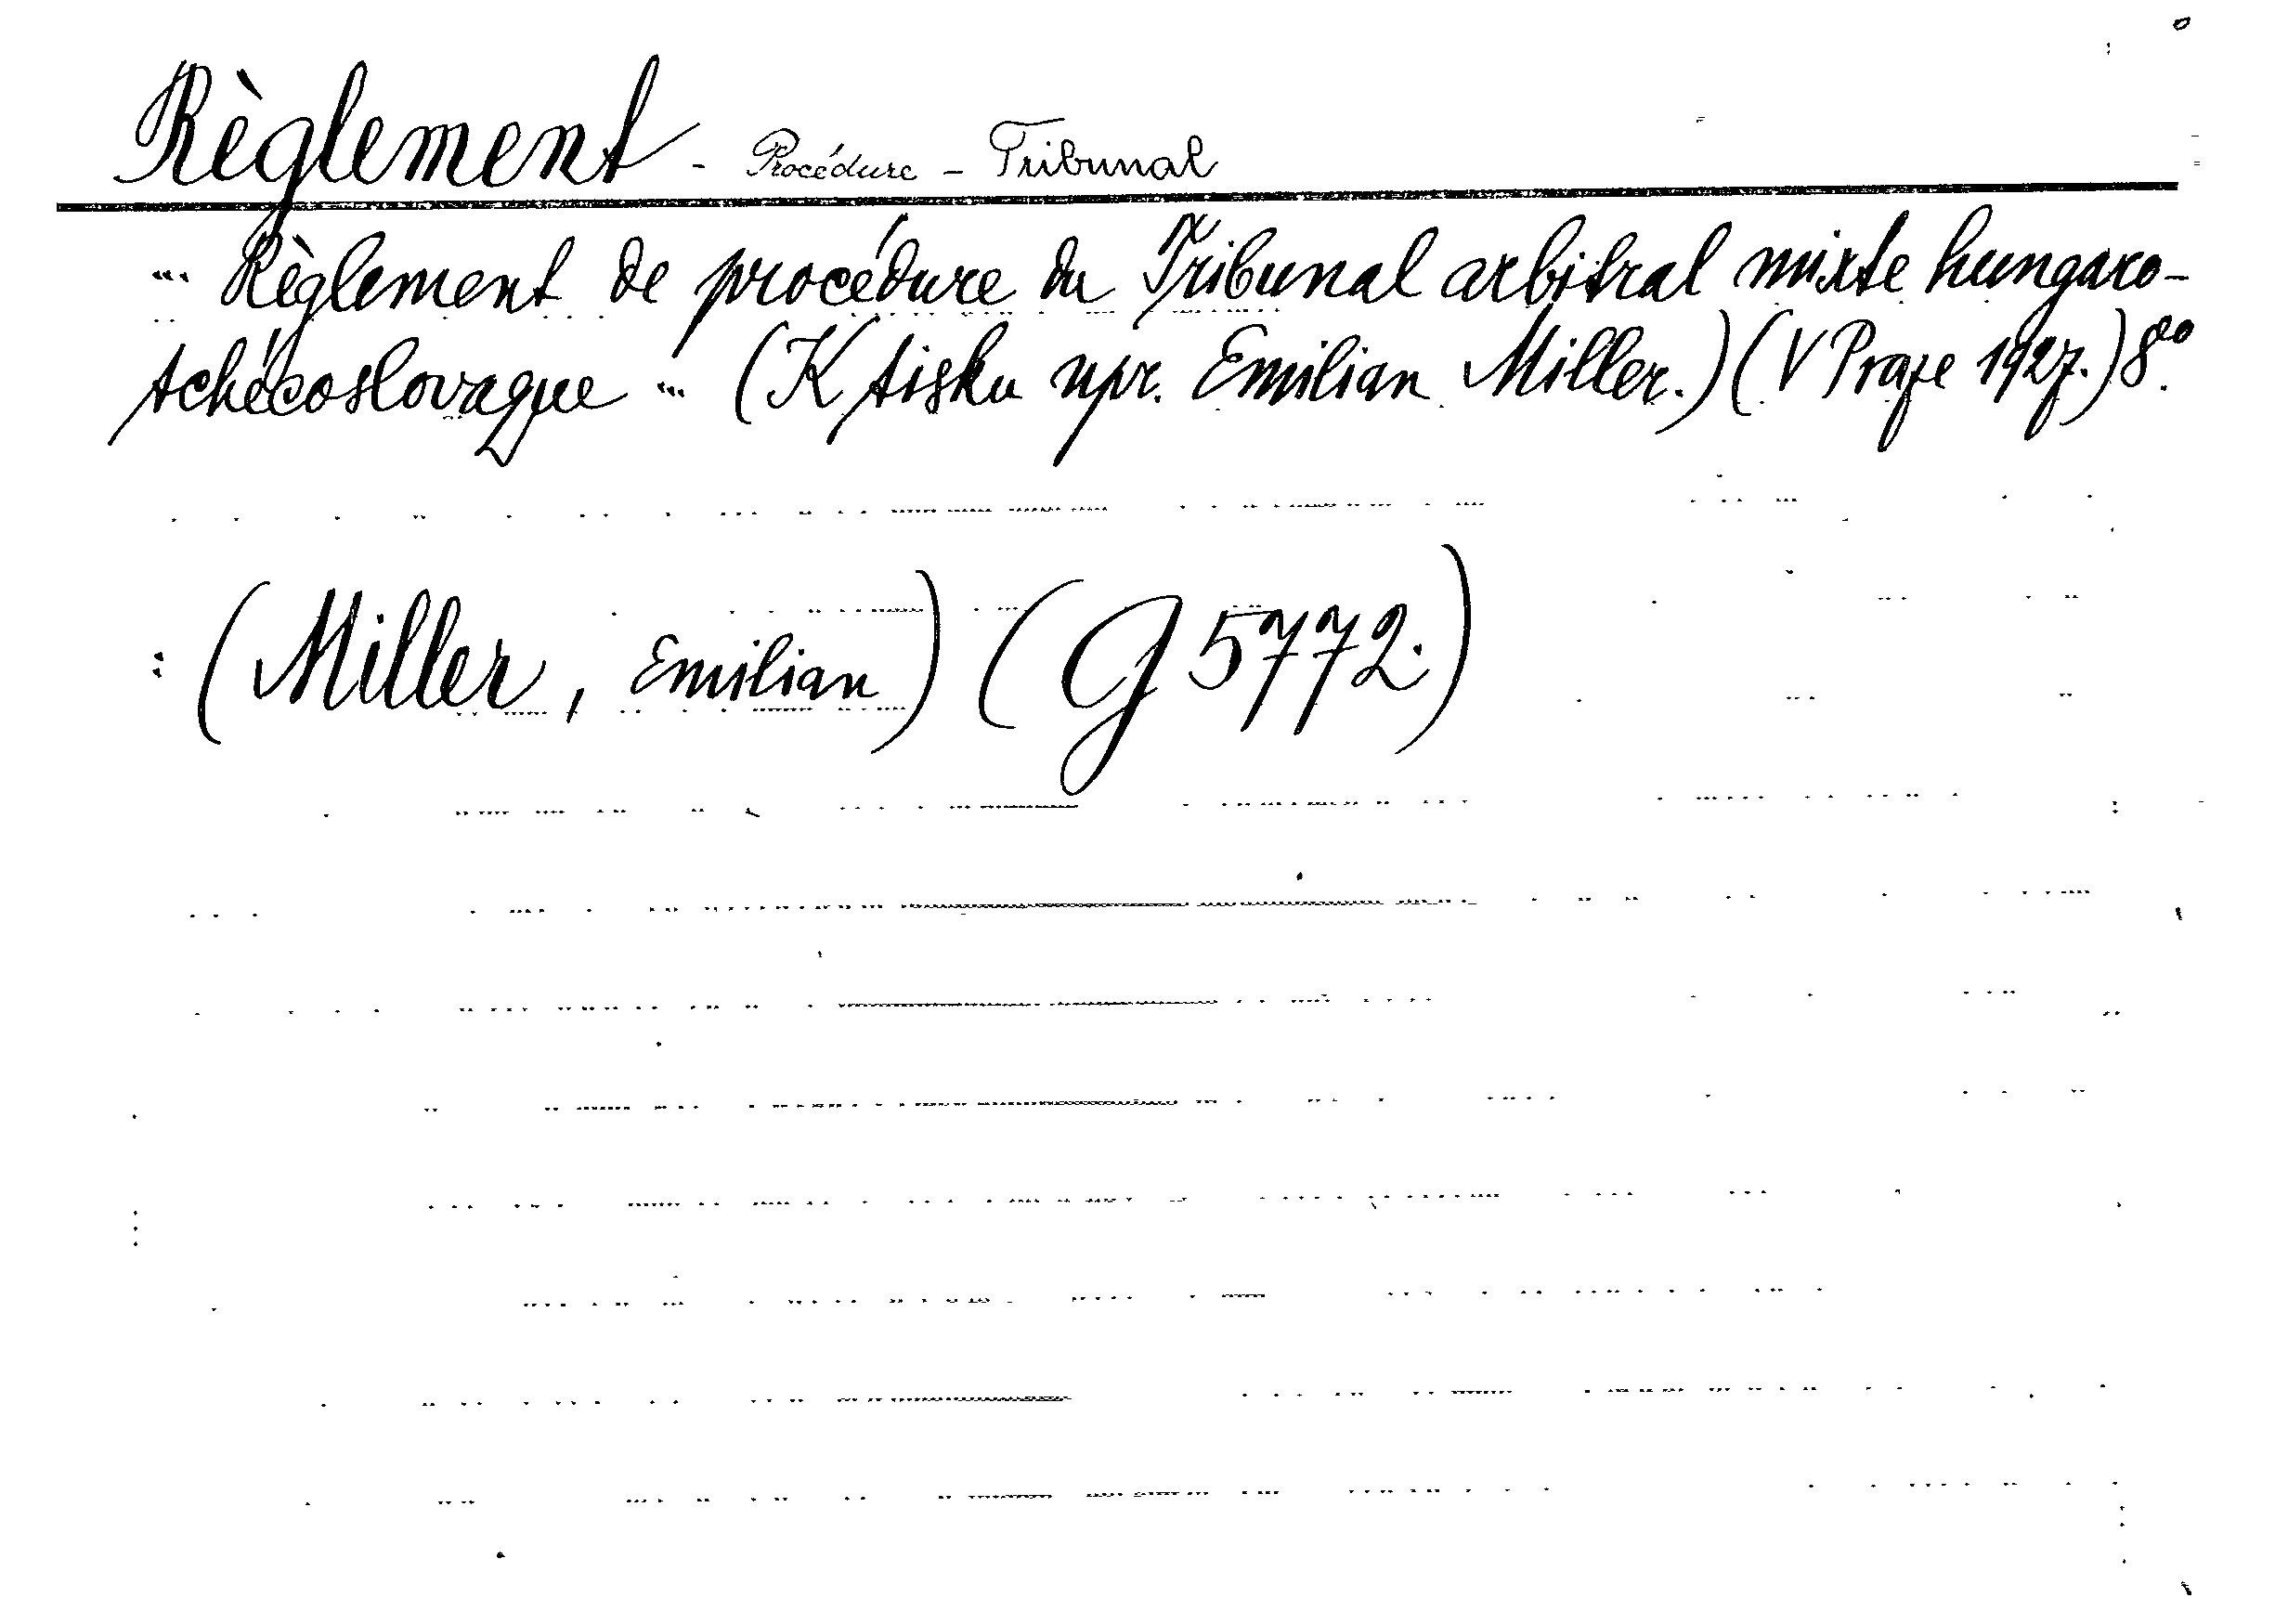 Règlement - Procédure - Tribunal
... Règlement de procédure du Tribunal arbitral mixte hungaro-
tchécoslovaque ... (K tisku upr. Emilian Miller.) (V Praze 1927.) 8°.
: (Miller, Emilian) (G 5772.)